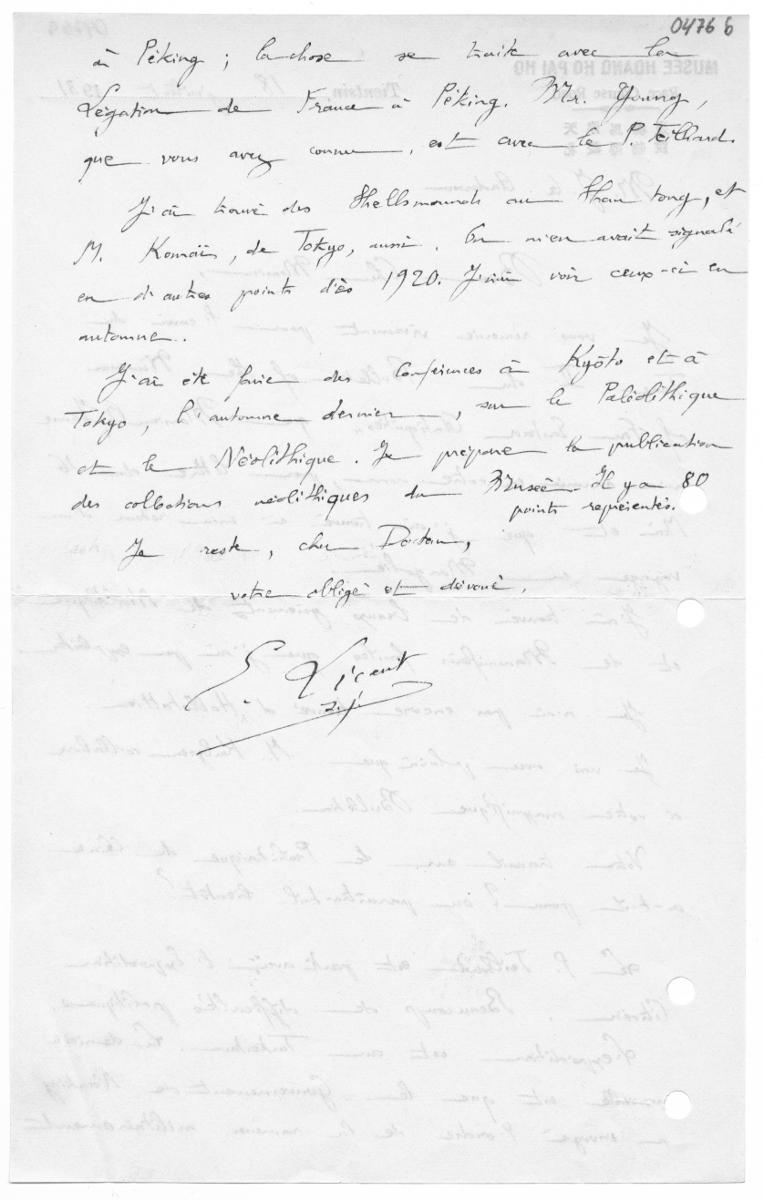 0476 b
à Péking ; la chose se traite avec la
Légation de France à Péking. Mr. Young,
que vous avez connu, est avec le P. Teilhard.
J'ai trouvé des Shellsmounds au Shan tong, et
M. Komaï, de Tokyo, aussi. On m'en avait signalé
en d'autres points dès 1920. J'irai voir ceux-ci en
automne.
J'ai été faire des Conférences à Kyôto et à
Tokyo, l'automne dernier, sur le Paléolithique
et le Néolithique. Je prépare la publication
des collections néolithiques du Musée. Il y a 80
points représentés.
Je reste, cher Docteur,
votre obligé et dévoué.
E. Licent
s.j.